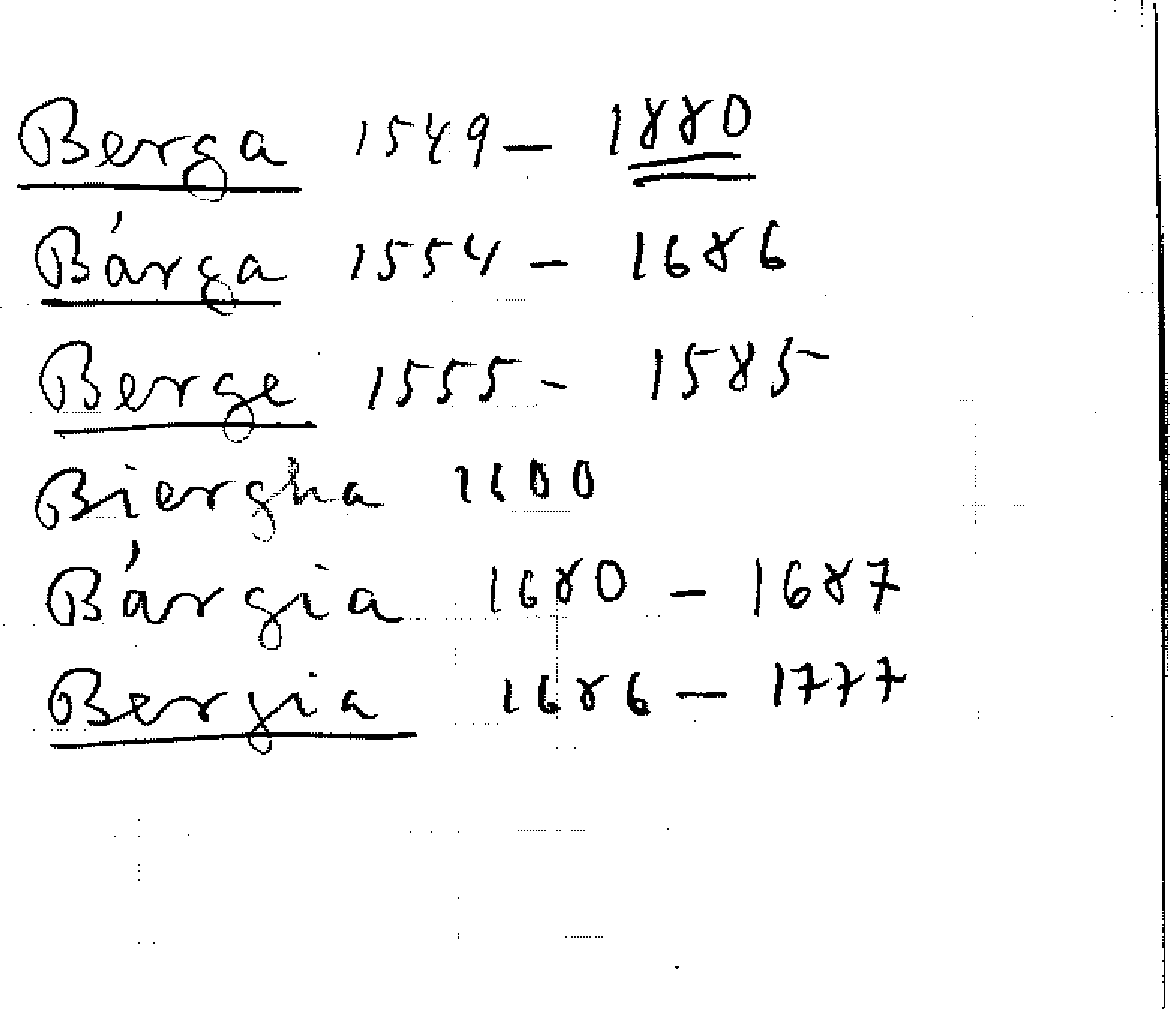 Berga 1549 – 1880
Bárga 1554 – 1686
Berge 1555 – 1585
Biergha 1600
Bárgia 1680 – 1687
Bergia 1686 – 1777